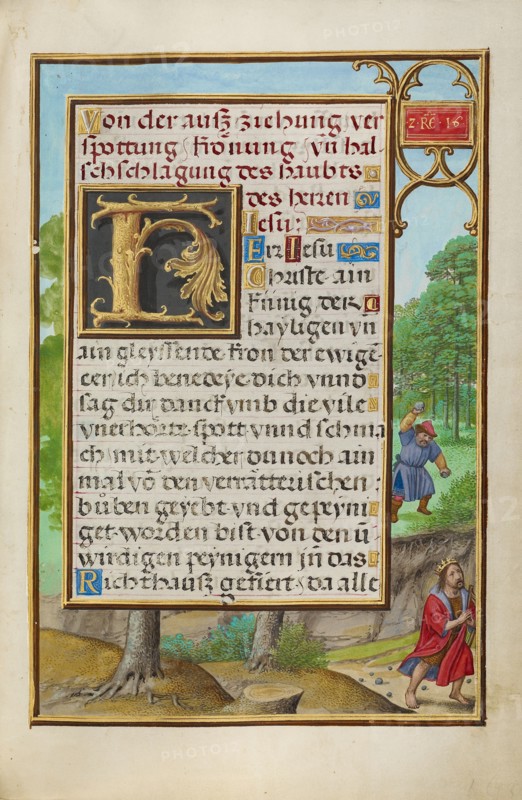 Von der außziehung ver
spottung krönung vn̄ hal-
schschlagung des haubts
des herren
Iesu:
Er Iesu
Christe ain
künig der
hayligen vn̄
ain gleyssende kron der ewigē
eer ich benedeye dich vnnd
sag dir danck vmb die vile
vnerhörte spott vnnd schma
ch mit welcher du noch ain
mal vō den verrätterischen:
bůben geyebt vnd gepeyni
get worden bist von den ū
wirdigen peynigern jn das
Richthauß gefiert da alle
2 RE 16